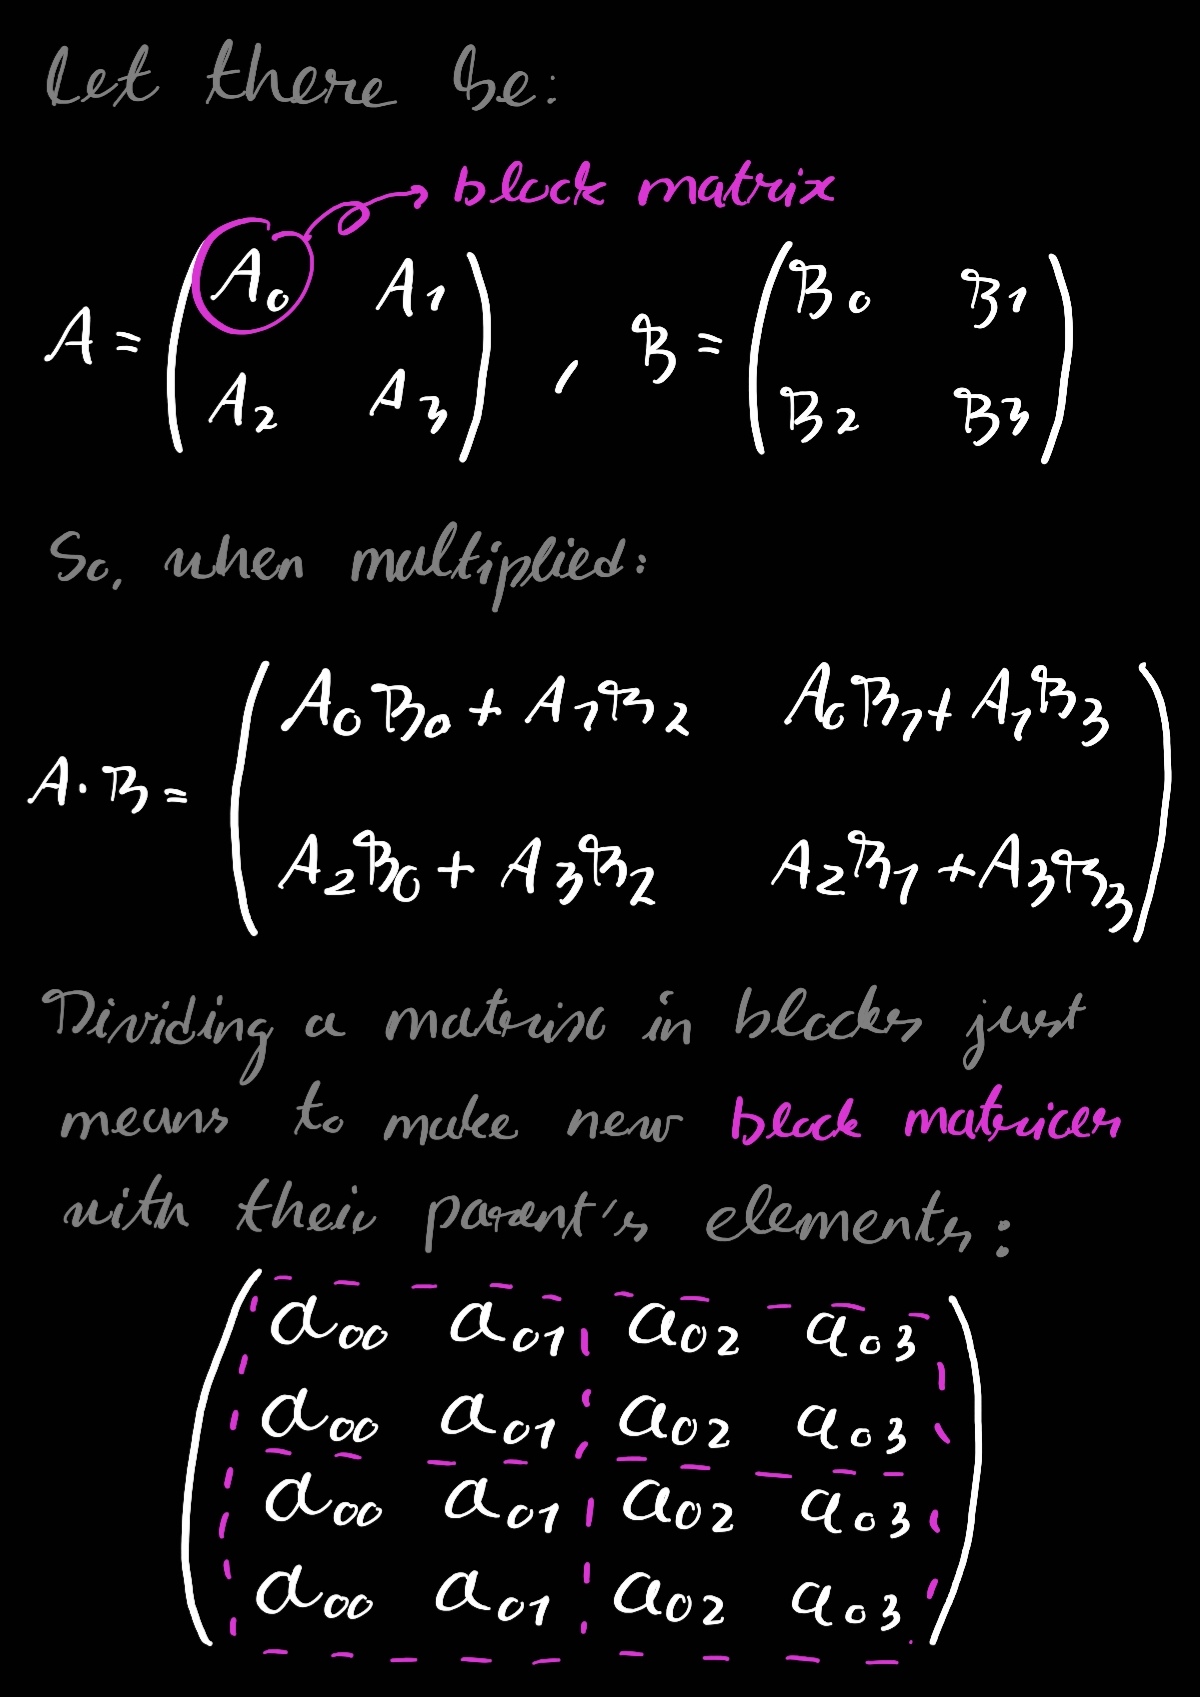 Let there be:
block matrix
A = ( A₀ A₁ ) , B = ( B₀ B₁ )
( A₂ A₃ ) ( B₂ B₃ )
So, when multiplied:
( A₀B₀ + A₁B₂ A₀B₁ + A₁B₃ )
A · B =
( A₂B₀ + A₃B₂ A₂B₁ + A₃B₃ )
Dividing a matrix in blocks just
means to make new block matrices
with their parent's elements:
( a₀₀ a₀₁ a₀₂ a₀₃ )
( a₀₀ a₀₁ a₀₂ a₀₃ )
( a₀₀ a₀₁ a₀₂ a₀₃ )
( a₀₀ a₀₁ a₀₂ a₀₃ )